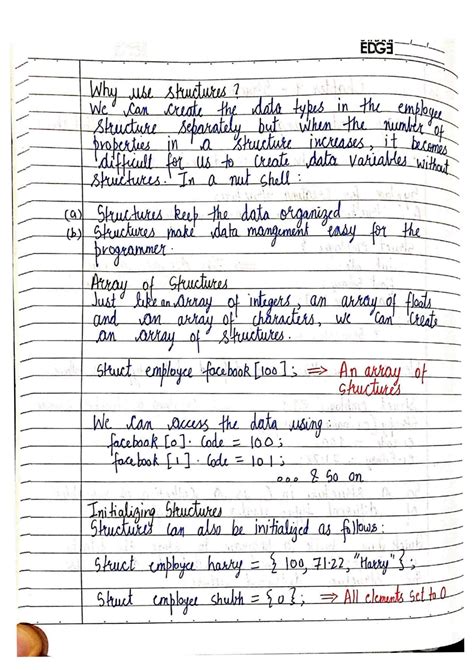 EDGE
Why use structures ?
We can create the data types in the employee
structure separately but when the number of
properties in a structure increases, it becomes
difficult for us to create data variables without
structures. In a nut shell :
(a) Structures keep the data organized
(b) Structures make data mangement easy for the
programmer.
Array of Structures
Just like an array of integers, an array of floats
and an array of characters, we can create
an array of structures.
Struct employee facebook [100] ; ⇒ An array of
structures
We can access the data using :
facebook [0]. Code = 100 ;
facebook [1]. Code = 101 ;
... & So on
Initializing Structures
Structures can also be initialized as follows :
Struct employee harry = { 100, 71.22, "Harry" } ;
Struct employee shubh = {0} ; ⇒ All elements set to 0